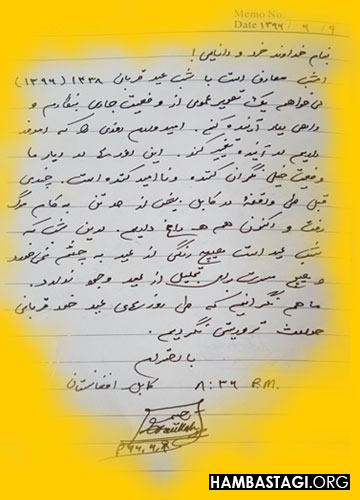 Memo No.
Date ۱۳۹۶ / ۶ / ۹
بنام خداوند خرد و دانایی!
امشب مصادف است با شب عید قربانی ۱۴۳۸ (۱۳۹۶)
می‌خواهم یک تصویر عمومی از وضعیت جاری بنگارم و
برای آینده کنم. امیدوارم روزی که امروز
داریم در آینده تغییر کند. این روزها در دیار ما
وضعیت خیلی نگران کننده و ناامید کننده است. چندی
قبل طی واقعهٔ در کابل بیش از صد تن به کام مرگ
رفت و اکنون هم داغ داریم. بدین شب که
شب عید است هیچ رنگی از عید به چشم نمی‌خورد
و هیچ مسرت برای تجلیل از عید وجود ندارد.
ما هم نگرانیم که طی روزهای عید خود قربانی
حملات تروریستی نگردیم.
با احترام
کابل افغانستان ۸:۳۶ P.M.
۹۶,۶,۹
HAMBASTAGI.ORG